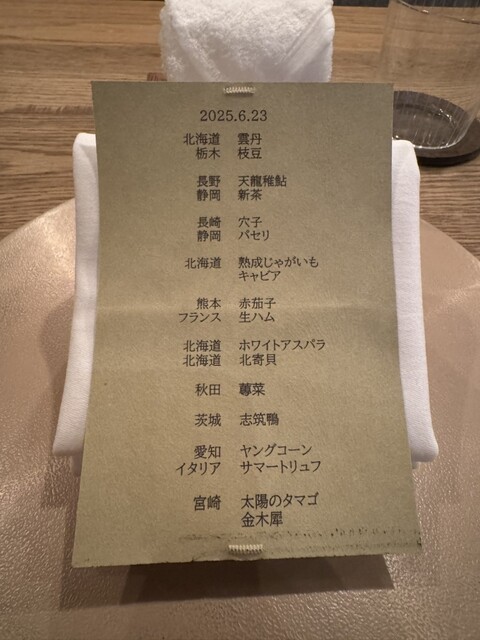 2025.6.23
北海道 雲丹
栃木 枝豆
長野 天龍稚鮎
静岡 新茶
長崎 穴子
静岡 パセリ
北海道 熟成じゃがいも
キャビア
熊本 赤茄子
フランス 生ハム
北海道 ホワイトアスパラ
北海道 北寄貝
秋田 蓴菜
茨城 志筑鴨
愛知 ヤングコーン
イタリア サマートリュフ
宮崎 太陽のタマゴ
金木犀